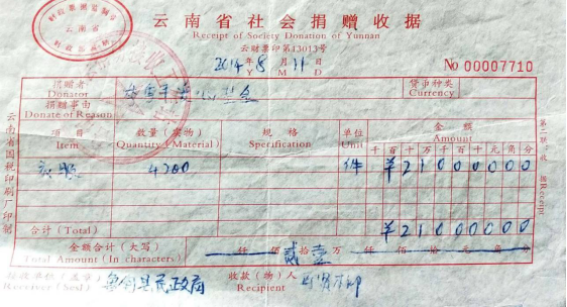 云南省社会捐赠收据
Receipt of Society Donation of Yunnan
云财票印第13013号
2014年8月11日
Y M D
No 00007710
捐赠者
Donator
货币种类
Currency
捐赠事由
Donate of Reason
项目 数量(实物) 规格 单位 金额
Item Quantity(Material) Specification Unit Amount
千百十万千百十元角分
衣服 4200 件 ¥21000000
合计(Total) ¥21000000
金额合计(大写) 仟佰贰拾壹万仟佰拾元角分
Total Amount(In characters)
接收单位(盖章) 鲁甸县民政局 收款(物)人
Receiver(Sed) Recipient
云南省国税印刷厂印制
第二联收据Receipt